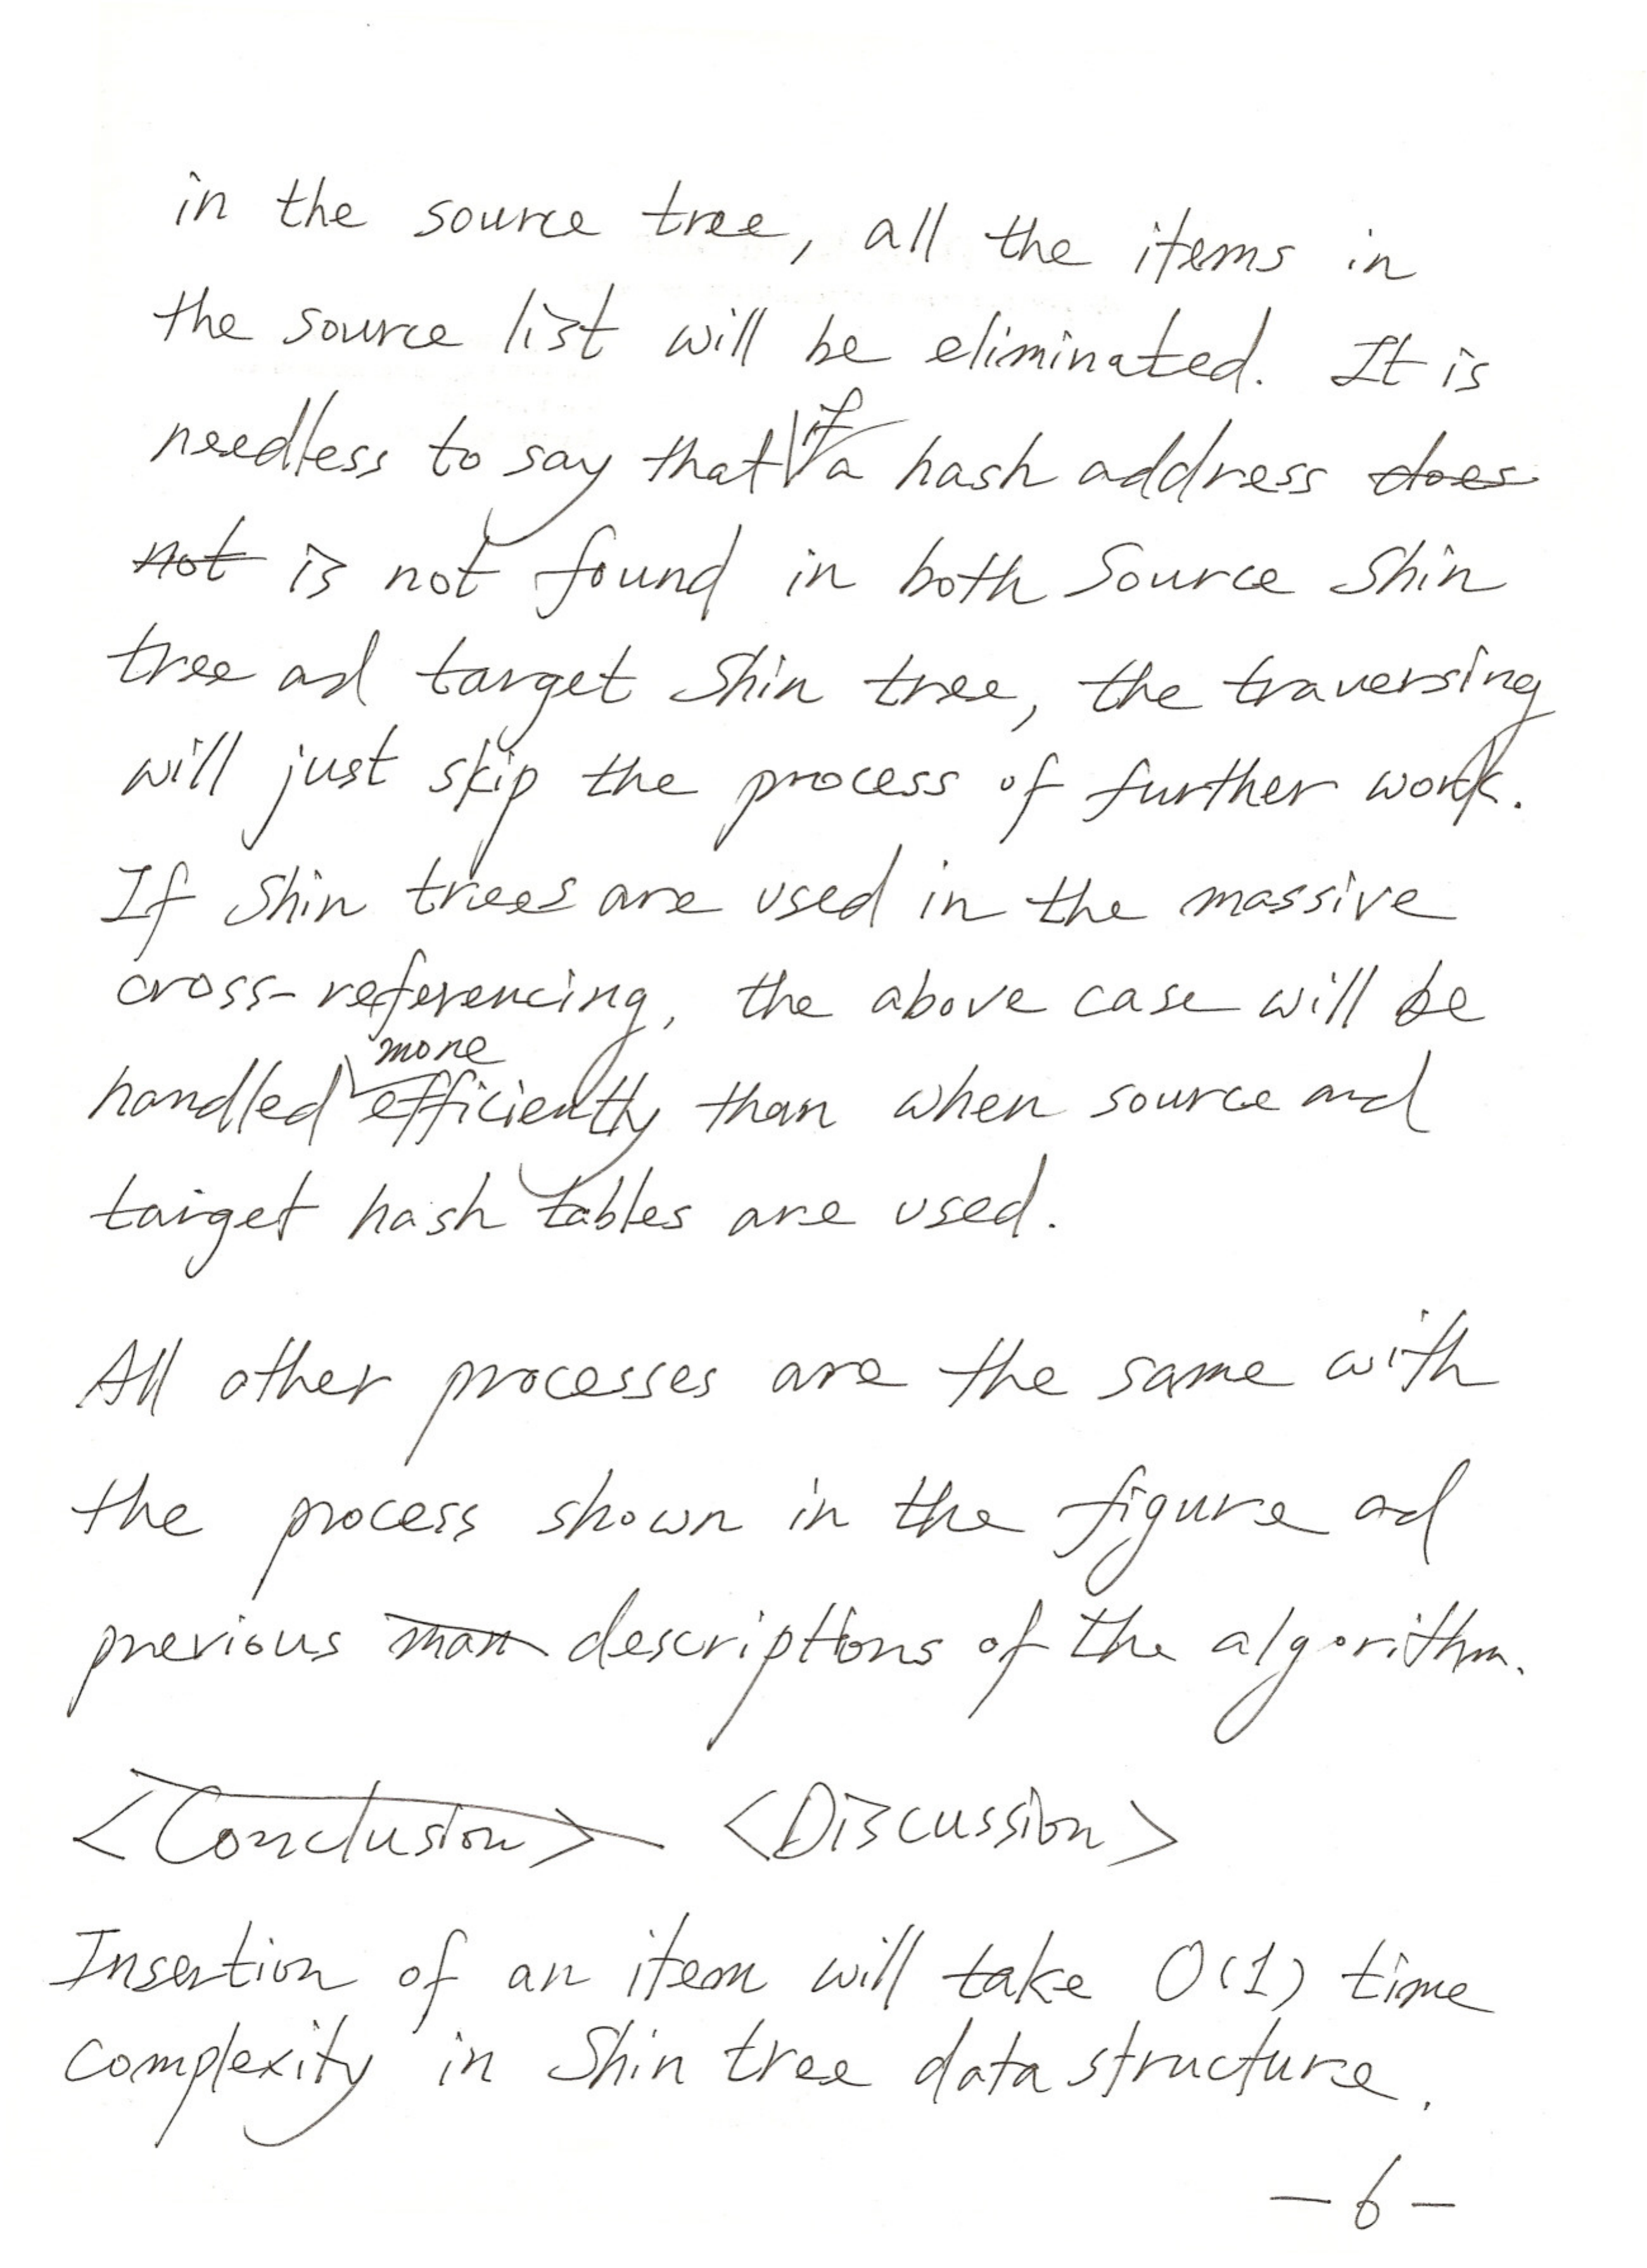 in the source tree, all the items in
the source list will be eliminated. It is
needless to say that if a hash address does
not is not found in both Source Shin
tree ad target Shin tree, the traversing
will just skip the process of further work.
If Shin trees are used in the massive
cross-referencing, the above case will be
handled more efficiently than when source and
target hash tables are used.
All other processes are the same with
the process shown in the figure ad
previous man descriptions of the algorithm.
<Conclusion> <Discussion>
Insertion of an item will take O(1) time
complexity in Shin tree data structure.
-6-